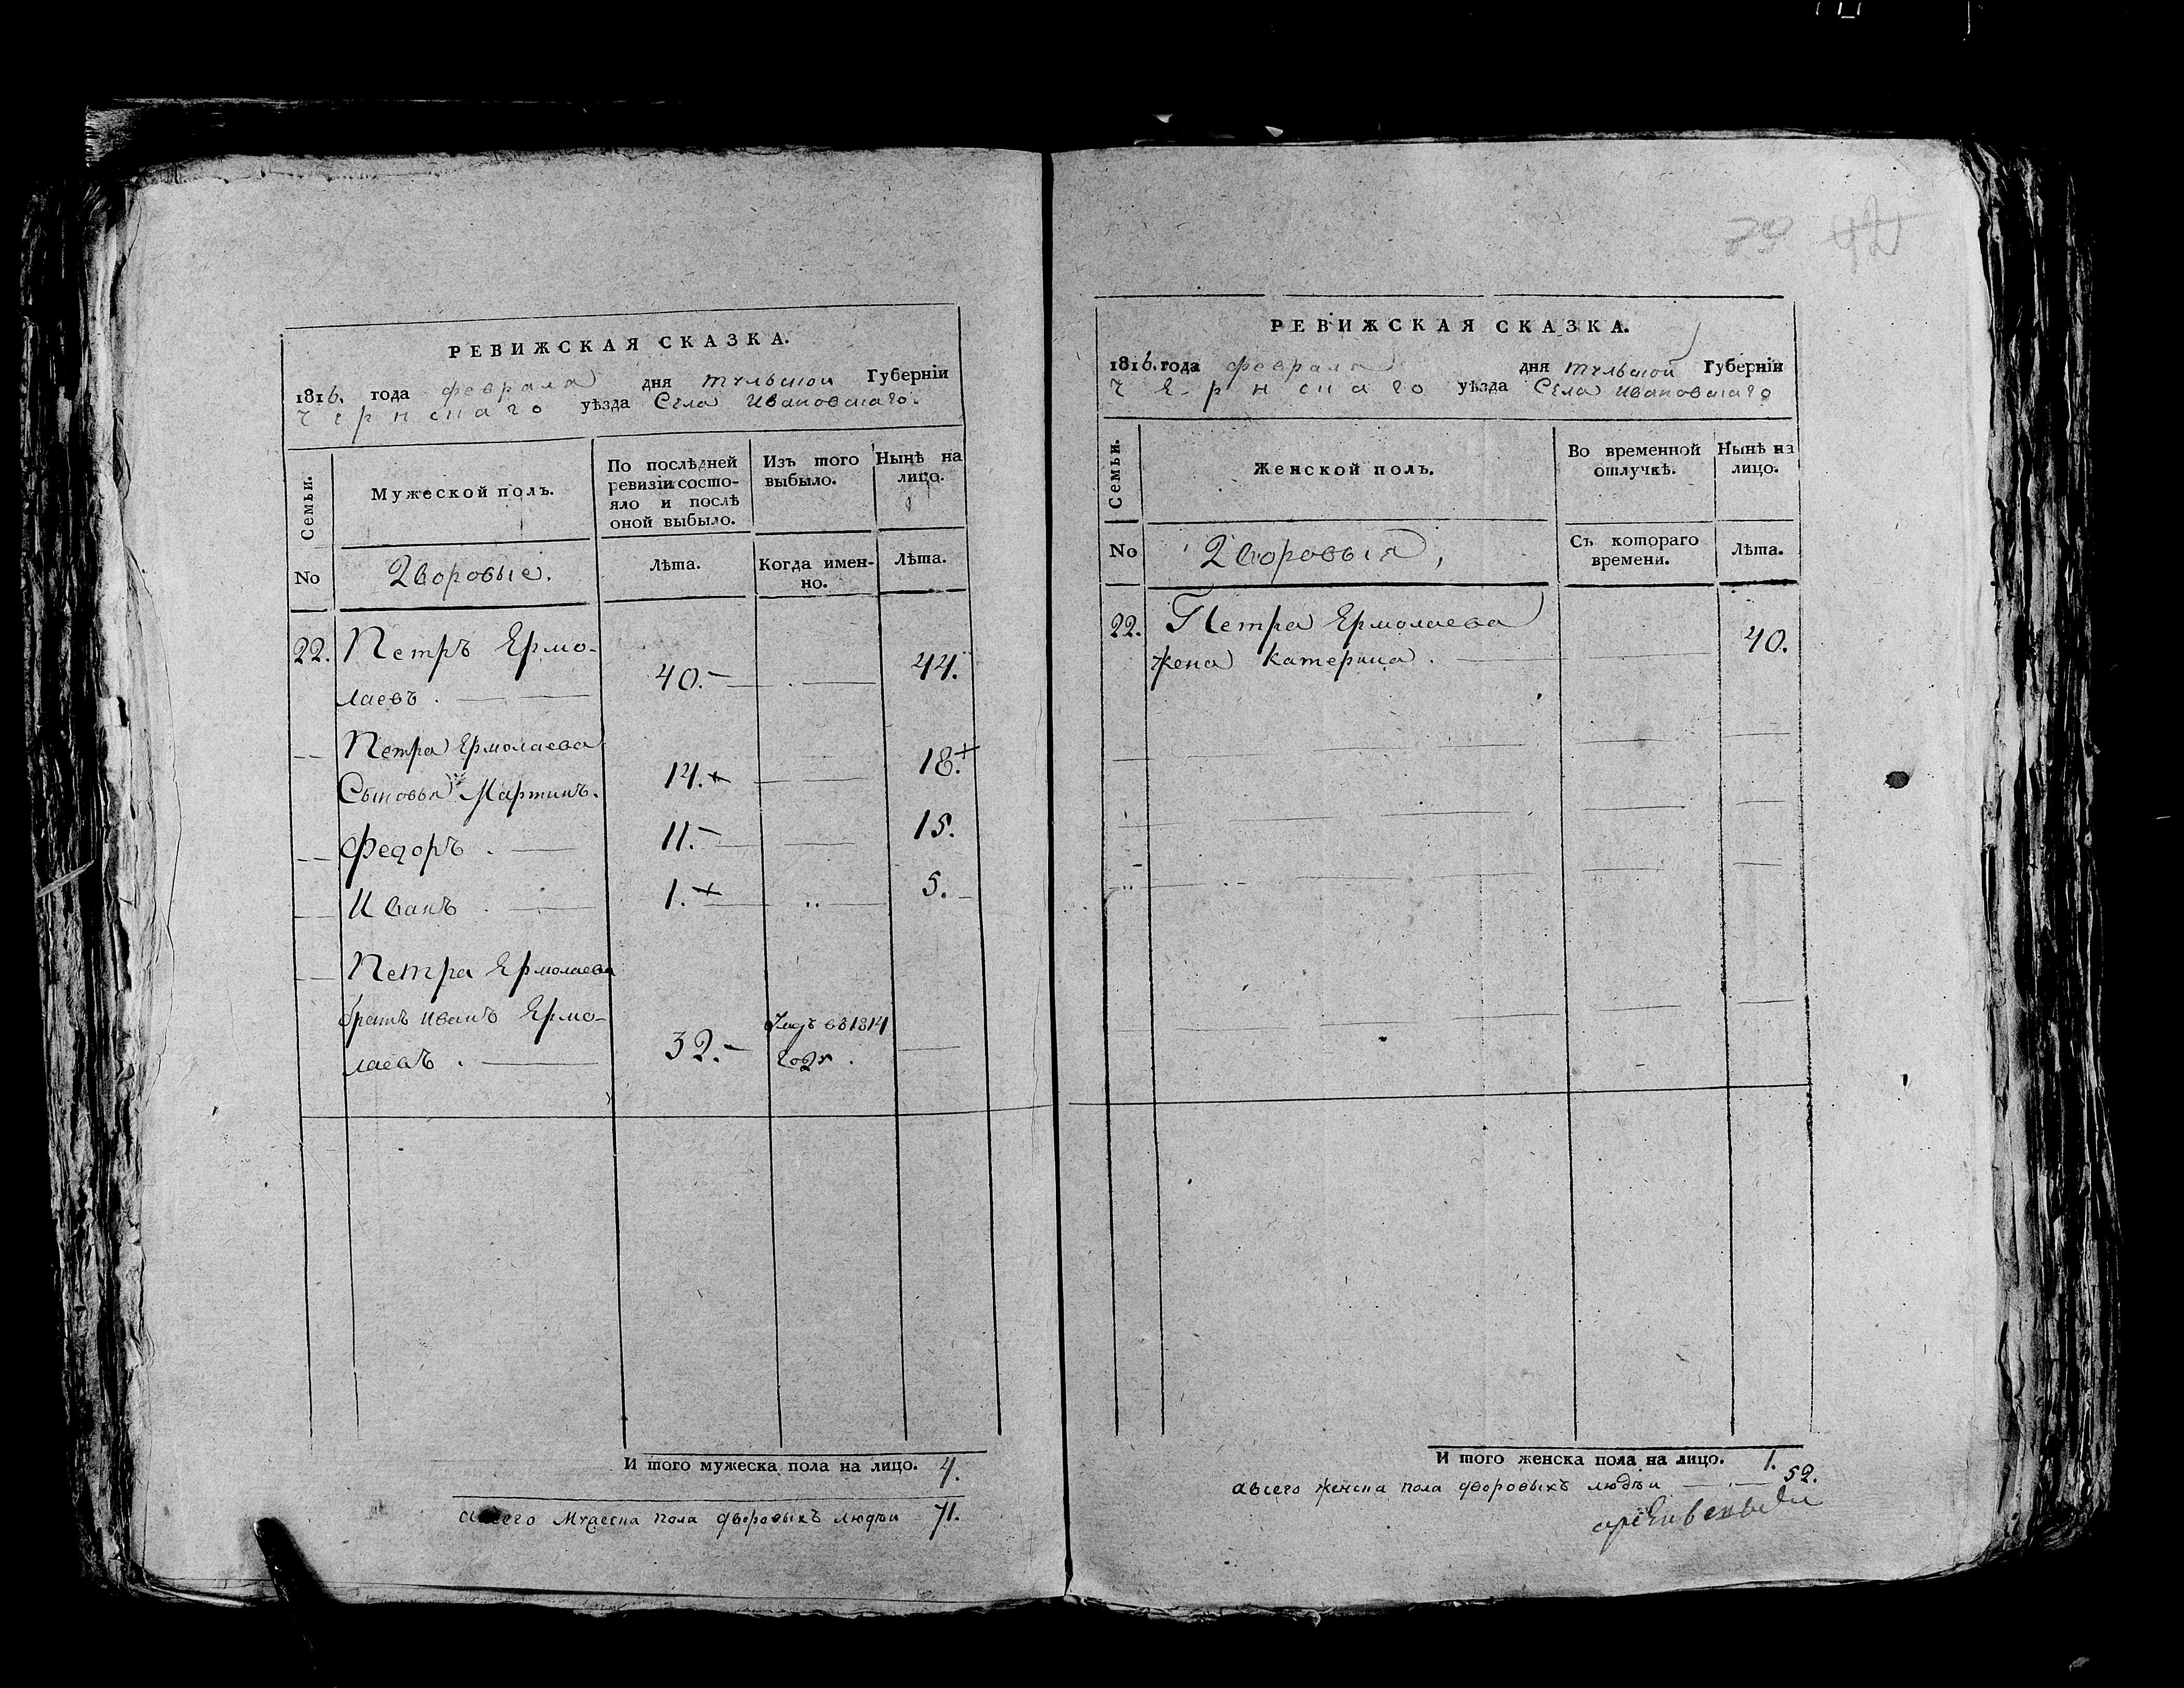 РЕВИЖСКАЯ СКАЗКА.
1816. года февраля дня тульской Губерніи
чернскаго уѣзда Села Ивановскаго.
Семьи.
Мужеской полъ.
По послѣдней
ревизіи состо-
яло и послѣ
оной выбыло.
Изъ того
выбыло.
Нынѣ на
лицо.
No
Дворовые.
Лѣта.
Когда имен-
но.
Лѣта.
22. Петръ Ермо-
лаевъ. 40. 44.
Петра Ермолаева
Сыновья Мартинъ. 14. 18.
Федоръ. 11. 15.
Иванъ 1. 5.
Петра Ермолаева
братъ Иванъ Ермо-
лаевъ. 32. въ 1814
году.
И того мужеска пола на лицо. 4.
а всего Мужеска пола дворовыхъ людѣи 71.
79 42
РЕВИЖСКАЯ СКАЗКА.
1816. года февраля дня тульской Губерніи
чернскаго уѣзда Села Ивановскаго
Семьи.
Женской полъ.
Во временной
отлучкѣ.
Нынѣ на
лицо.
No
Дворовыя,
Съ котораго
времени.
Лѣта.
22. Петра Ермолаева
жена Катерина. 40.
И того женска пола на лицо. 1.
а всего женска пола дворовыхъ людѣи 52.